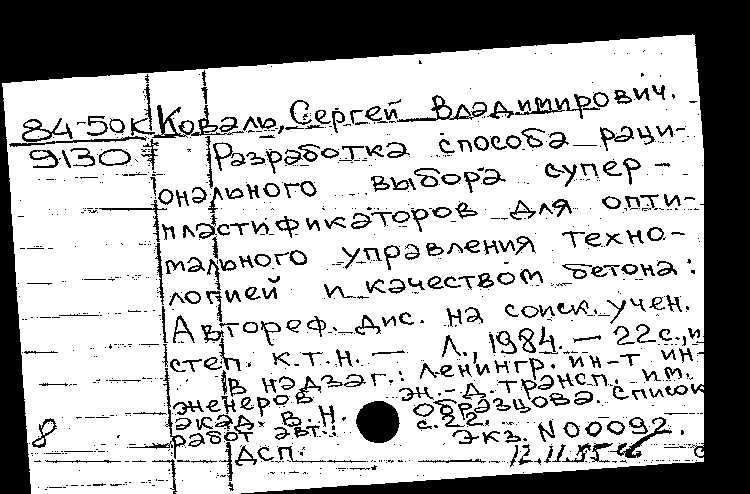 84-50К Коваль, Сергей Владимирович.
9130 Разработка способа раци-
онального выбора супер-
пластификаторов для опти-
мального управления техно-
логией и качеством бетона:
Автореф. дис. на соиск. учен.
степ. к.т.н. — Л., 1984. — 22 с., и
В надзаг.: Ленингр. ин-т ин-
женеров ж.-д. трансп. им.
акад. В.Н. Образцова. Список
работ авт.: с. 22.
8 Экз. N 00092.
ДСП. 12.11.85